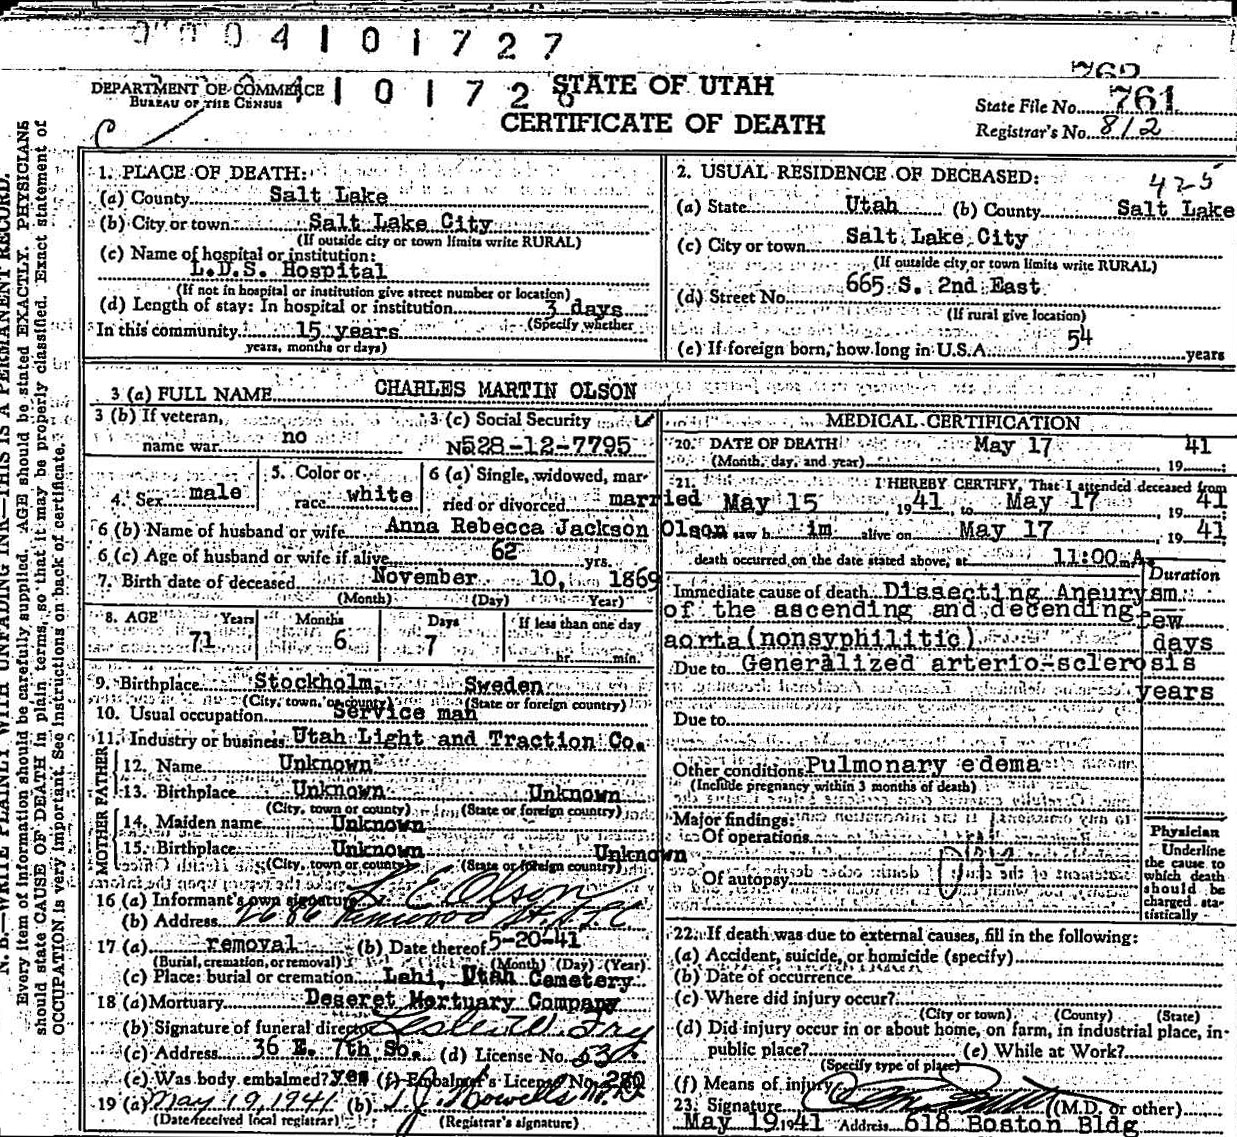 0004101727
DEPARTMENT OF COMMERCE
BUREAU OF THE CENSUS
4101726
STATE OF UTAH
CERTIFICATE OF DEATH
762
State File No. 761
Registrar's No. 812
N. B.—WRITE PLAINLY WITH UNFADING INK—THIS IS A PERMANENT RECORD.
Every item of information should be carefully supplied. AGE should be stated EXACTLY. PHYSICIANS
should state CAUSE OF DEATH in plain terms, so that it may be properly classified. Exact statement of
OCCUPATION is very important. See instructions on back of certificate.
1. PLACE OF DEATH:
(a) County Salt Lake
(b) City or town Salt Lake City
(If outside city or town limits write RURAL)
(c) Name of hospital or institution:
L.D.S. Hospital
(If not in hospital or institution give street number or location)
(d) Length of stay: In hospital or institution 3 days
(Specify whether
In this community 15 years
years, months or days)
2. USUAL RESIDENCE OF DECEASED:
425
(a) State Utah (b) County Salt Lake
(c) City or town Salt Lake City
(If outside city or town limits write RURAL)
(d) Street No. 665 S. 2nd East
(If rural give location)
(e) If foreign born, how long in U.S.A. 54 years
3 (a) FULL NAME CHARLES MARTIN OLSON
3 (b) If veteran,
name war no
3 (c) Social Security
No. 528-12-7795
4. Sex male
5. Color or
race white
6 (a) Single, widowed, mar-
ried or divorced married
6 (b) Name of husband or wife Anna Rebecca Jackson Olson
6 (c) Age of husband or wife if alive 62 yrs.
7. Birth date of deceased November 10, 1869
(Month) (Day) (Year)
8. AGE Years Months Days If less than one day
71 6 7 hr. min.
9. Birthplace Stockholm, Sweden
(City, town, or county) (State or foreign country)
10. Usual occupation Service man
11. Industry or business Utah Light and Traction Co.
FATHER
12. Name Unknown
13. Birthplace Unknown Unknown
(City, town or county) (State or foreign country)
MOTHER
14. Maiden name Unknown
15. Birthplace Unknown Unknown
(City, town or county) (State or foreign country)
16 (a) Informant's own signature L. E. Olson
(b) Address
17 (a) removal (b) Date thereof 5-20-41
(Burial, cremation, or removal) (Month) (Day) (Year)
(c) Place: burial or cremation Lehi, Utah Cemetery
18 (a) Mortuary Deseret Mortuary Company
(b) Signature of funeral director
(c) Address 36 E. 7th So. (d) License No. 530
(e) Was body embalmed? yes (f) Embalmer's License No. 280
19 (a) May 19, 1941 (b) T. J. Howells M.D.
(Date received local registrar) (Registrar's signature)
MEDICAL CERTIFICATION
20. DATE OF DEATH May 17 41
(Month, day, and year) 19
21. I HEREBY CERTIFY, That I attended deceased from
May 15, 1941, to May 17, 1941
I last saw him alive on May 17, 1941
death occurred on the date stated above, at 11:00 m A.
Duration
Immediate cause of death Dissecting Aneurysm
of the ascending and decending few
aorta (nonsyphilitic) days
Due to Generalized arterio-sclerosis
years
Due to
Other conditions Pulmonary edema
(Include pregnancy within 3 months of death)
Major findings:
Of operations
Of autopsy
Physician
Underline
the cause to
which death
should be
charged sta-
tistically
22. If death was due to external causes, fill in the following:
(a) Accident, suicide, or homicide (specify)
(b) Date of occurrence
(c) Where did injury occur?
(City or town) (County) (State)
(d) Did injury occur in or about home, on farm, in industrial place, in
public place? (e) While at Work?
(Specify type of place)
(f) Means of injury
23. Signature (M.D. or other)
May 19 1941 Address 618 Boston Bldg